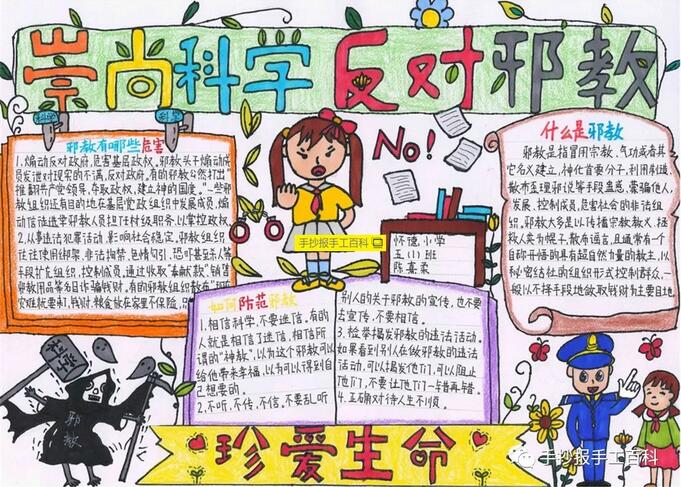 崇尚科学 反对邪教
科学
科学
邪教有哪些危害
1.煽动反对政府,危害基层政权,邪教头子煽动成
员发泄对现实的不满,反对政府,有的邪教公然打出"
推翻共产党领导,夺取政权,建立神的国度。"一些邪
教组织还有目的地在基层党政组织中发展成员,煽
动信徒选举邪教人员担任村级职务,以掌控政权。
2.从事违法犯罪活动,影响社会稳定,邪教组织
往往使用绑架、非法拘禁、色情勾引、恐吓甚至杀人等
手段扩充组织,控制成员,通过收取"奉献款"销售
邪教用品等名目诈骗钱财,有的邪教组织散布"
灾难就要来了,钱财、粮食放在家里不保险,
NO!
什么是邪教
邪教是指冒用宗教、气功或者其
它名义建立,神化首要分子,利用制造、
散布歪理邪说等手段蛊惑、蒙骗他人,
发展、控制成员,危害社会的非法组
织。邪教大多是以传播宗教教义、拯
救人类为幌子,散布谣言,且通常有个
自称开悟的具有超自然力量的教主,以
秘密结社的组织形式控制群众,一
般以不择手段地敛取钱财为主要目的
怀德小学
五(11)班
陈熹柔
手抄报手工百科
如何防范邪教
1.相信科学,不要迷信。有的
人就是相信了迷信,相信所
谓的"神教",以为这个邪教可以
给他带来幸福,以为可以得到自
己想要的。
2.不听、不传、不信、不要乱听
别人的关于邪教的宣传,也不要
去宣传,不要相信。
3.检举揭发邪教的违法活动。
如果看到别人在做邪教的违法
活动,可以揭发他们,可以阻止
他们,不要让他们一错再错。
4.正确对待人生不顺。
邪教
珍爱生命
手抄报手工百科